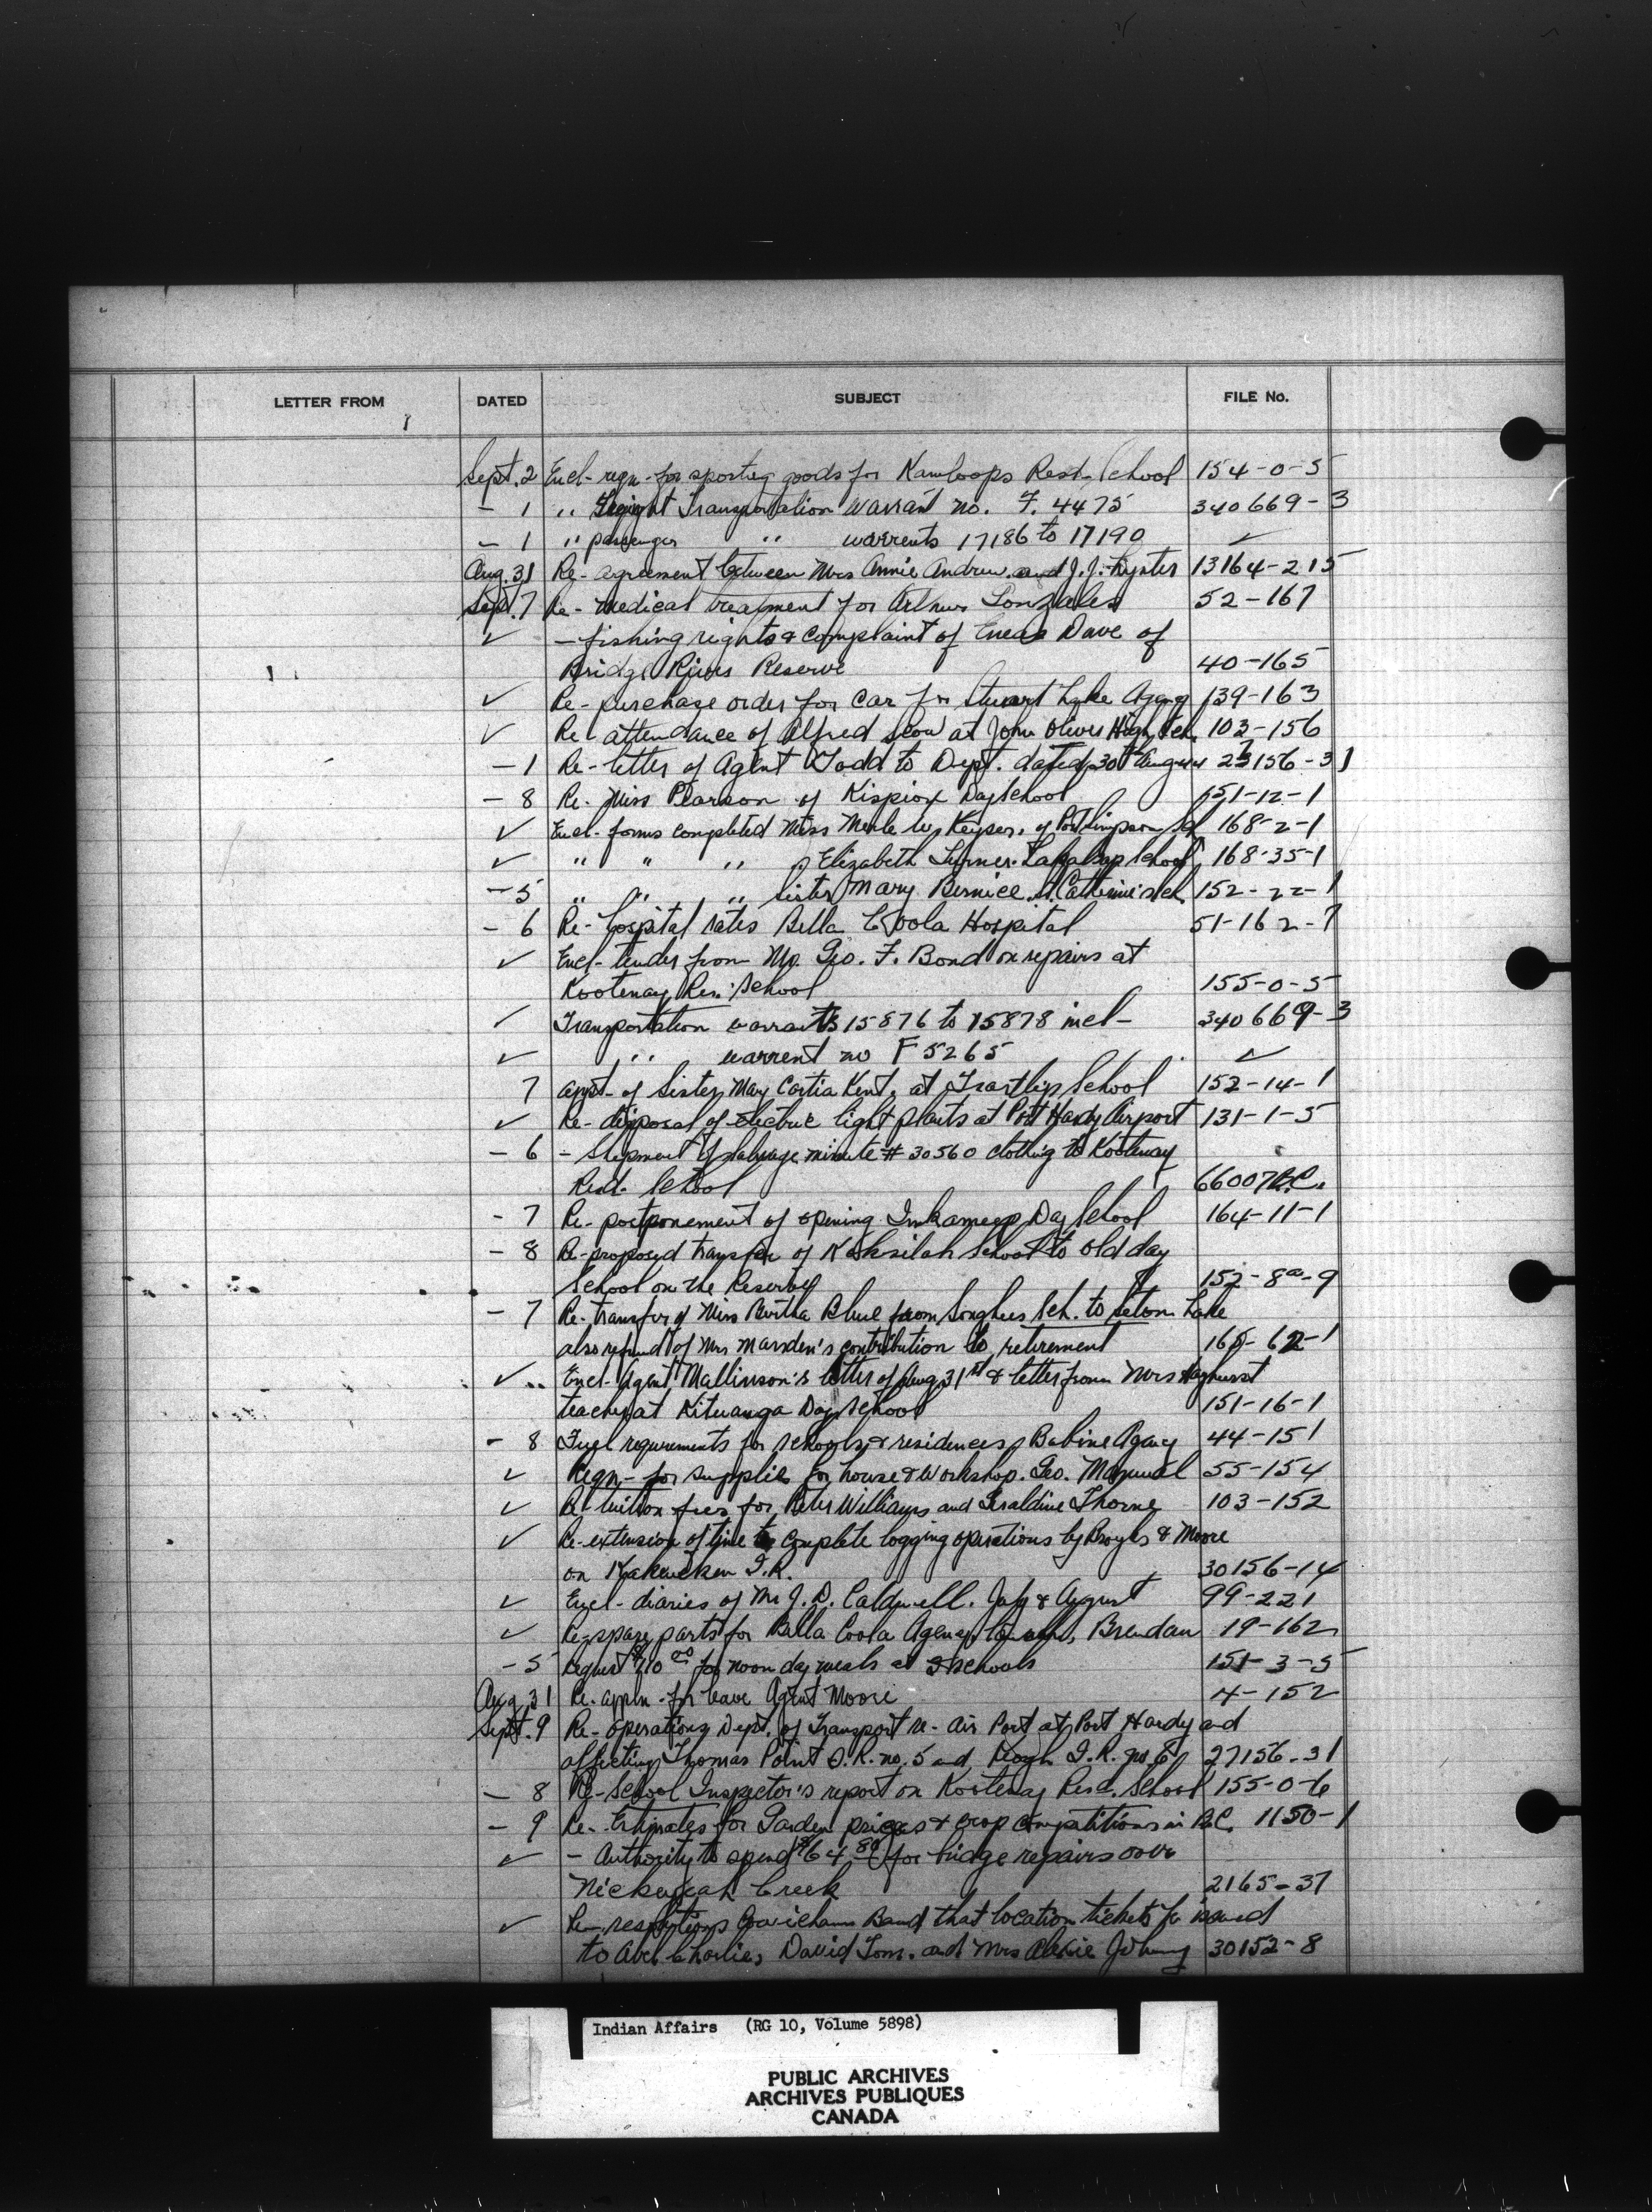 LETTER FROM DATED SUBJECT FILE No.
Sept. 2 Encl- reqn- for sporting goods for Kamloops Resd- School 154-0-5
- 1 " Freight Transportation Warrant no. F. 4475 340669-3
- 1 " passenger " warrents 17186 to 17190 ✓
Aug. 31 Re- agreement between Mrs Annie Andrew and J.J. Lyster 13164-215
Sept. 7 Re- medical treatment for Arthur Gonzales 52-167
✓ - fishing rights & complaint of Eneas Dave of
Bridge River Reserve 40-165
✓ Re- purchase order for car for Stuart Lake Agency 139-163
✓ Re- attendance of Alfred Scow at John Oliver High Sch. 103-156
- 1 Re- letter of Agent Todd to Dept. dated 30th August 23156-31
- 8 Re- Miss Pearson of Kispiox Day School 151-12-1
✓ Encl- forms completed Miss Merle W. Keyser, of Port Simpson Sch 168-2-1
✓ " " " Elizabeth Turner. Lakalsap School 168-35-1
- 5 " " " Sister Mary Bernice St. Catherine's Sch. 152-22-1
- 6 Re- hospital rates Bella Coola Hospital 51-162-7
✓ Encl- tender from Mr. Geo. F. Bond on repairs at
Kootenay Res. School 155-0-5
✓ Transportation warrants 15876 to 15878 incl- 340669-3
✓ " warrent no F 5265 ✓
7 appt- of Sister Mary Kent, at Tsartlip School 152-14-1
✓ Re- disposal of electric light plants at Port Hardy Airport 131-1-5
- 6 - Shipment of salvage minute # 30560 clothing to Kootenay
Resd- School 66007 B.C.
- 7 Re- postponement of opening Inkameep Day School 164-11-1
- 8 Re- proposed transfer of Koksilah School to old day
School on the Reserve 152-8a-9
- 7 Re- transfer of Miss Bertha Blue from Songhees Sch. to Seton Lake
also refund of Mrs Marsden's contribution to retirement 165-62-1
✓ .. Encl- Agent Mallinson's letter of Aug 31st & letter from Mrs Hayhurst
teacher at Kitwanga Day School 151-16-1
- 8 Fuel requirements for schools & residences Babine Agency 44-151
✓ Reqn- for supplies for house & workshop. Geo. Manuel 55-154
✓ Re- tuition fees for Peter Williams and Geraldine Thorne 103-152
✓ Re- extension of time to complete logging operations by Broyles & Moore
on Kakweken I.R. 30156-14
✓ Encl- diaries of Mr J. D. Caldwell. July & August 99-221
✓ Re- spare parts for Bella Coola Agency launch, Brendan 19-162
- 5 Request $10.00 for noon day meals at 3 schools 151-3-5
Aug 31 Re- appln- for leave Agent Moore 4-152
Sept. 9 Re- operations Dept. of Transport re- Air Port at Port Hardy and
affecting Thomas Point I.R. no. 5 and Keogh I.R. no 6 27156-31
- 8 Re- School Inspector's report on Kootenay Resd. School 155-0-6
- 9 Re- Estimates for Garden prizes & crop competitions in B.C. 1150-1
✓ - Authority to spend $64.80 for bridge repairs over
Creek 2165-37
✓ Re- resolutions Cowichan Band that location tickets be issued
to Abel Charlie, David Tom. and Mrs Johnny 30152-8
Indian Affairs (RG 10, Volume 5898)
PUBLIC ARCHIVES
ARCHIVES PUBLIQUES
CANADA